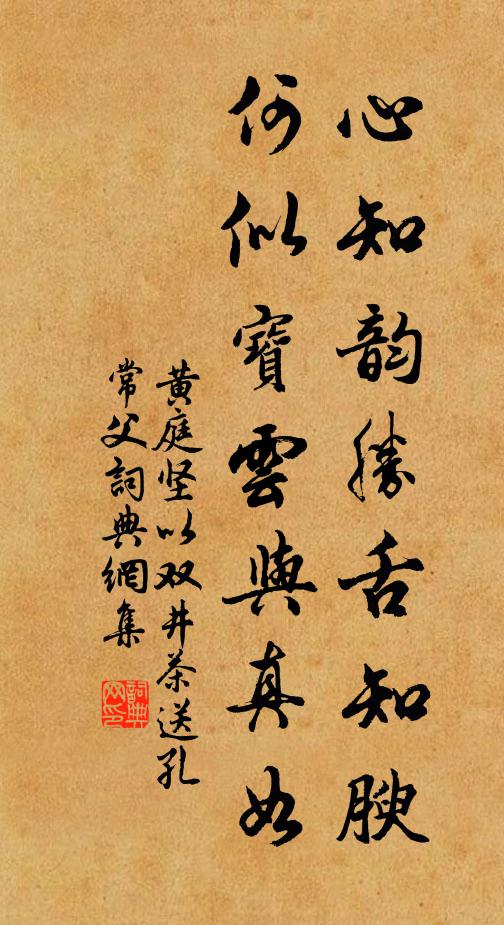 心知韵勝舌知腴
何似寶雲與真如
黄庭坚以双井茶送孔
常父詞典網集
詞典
网印